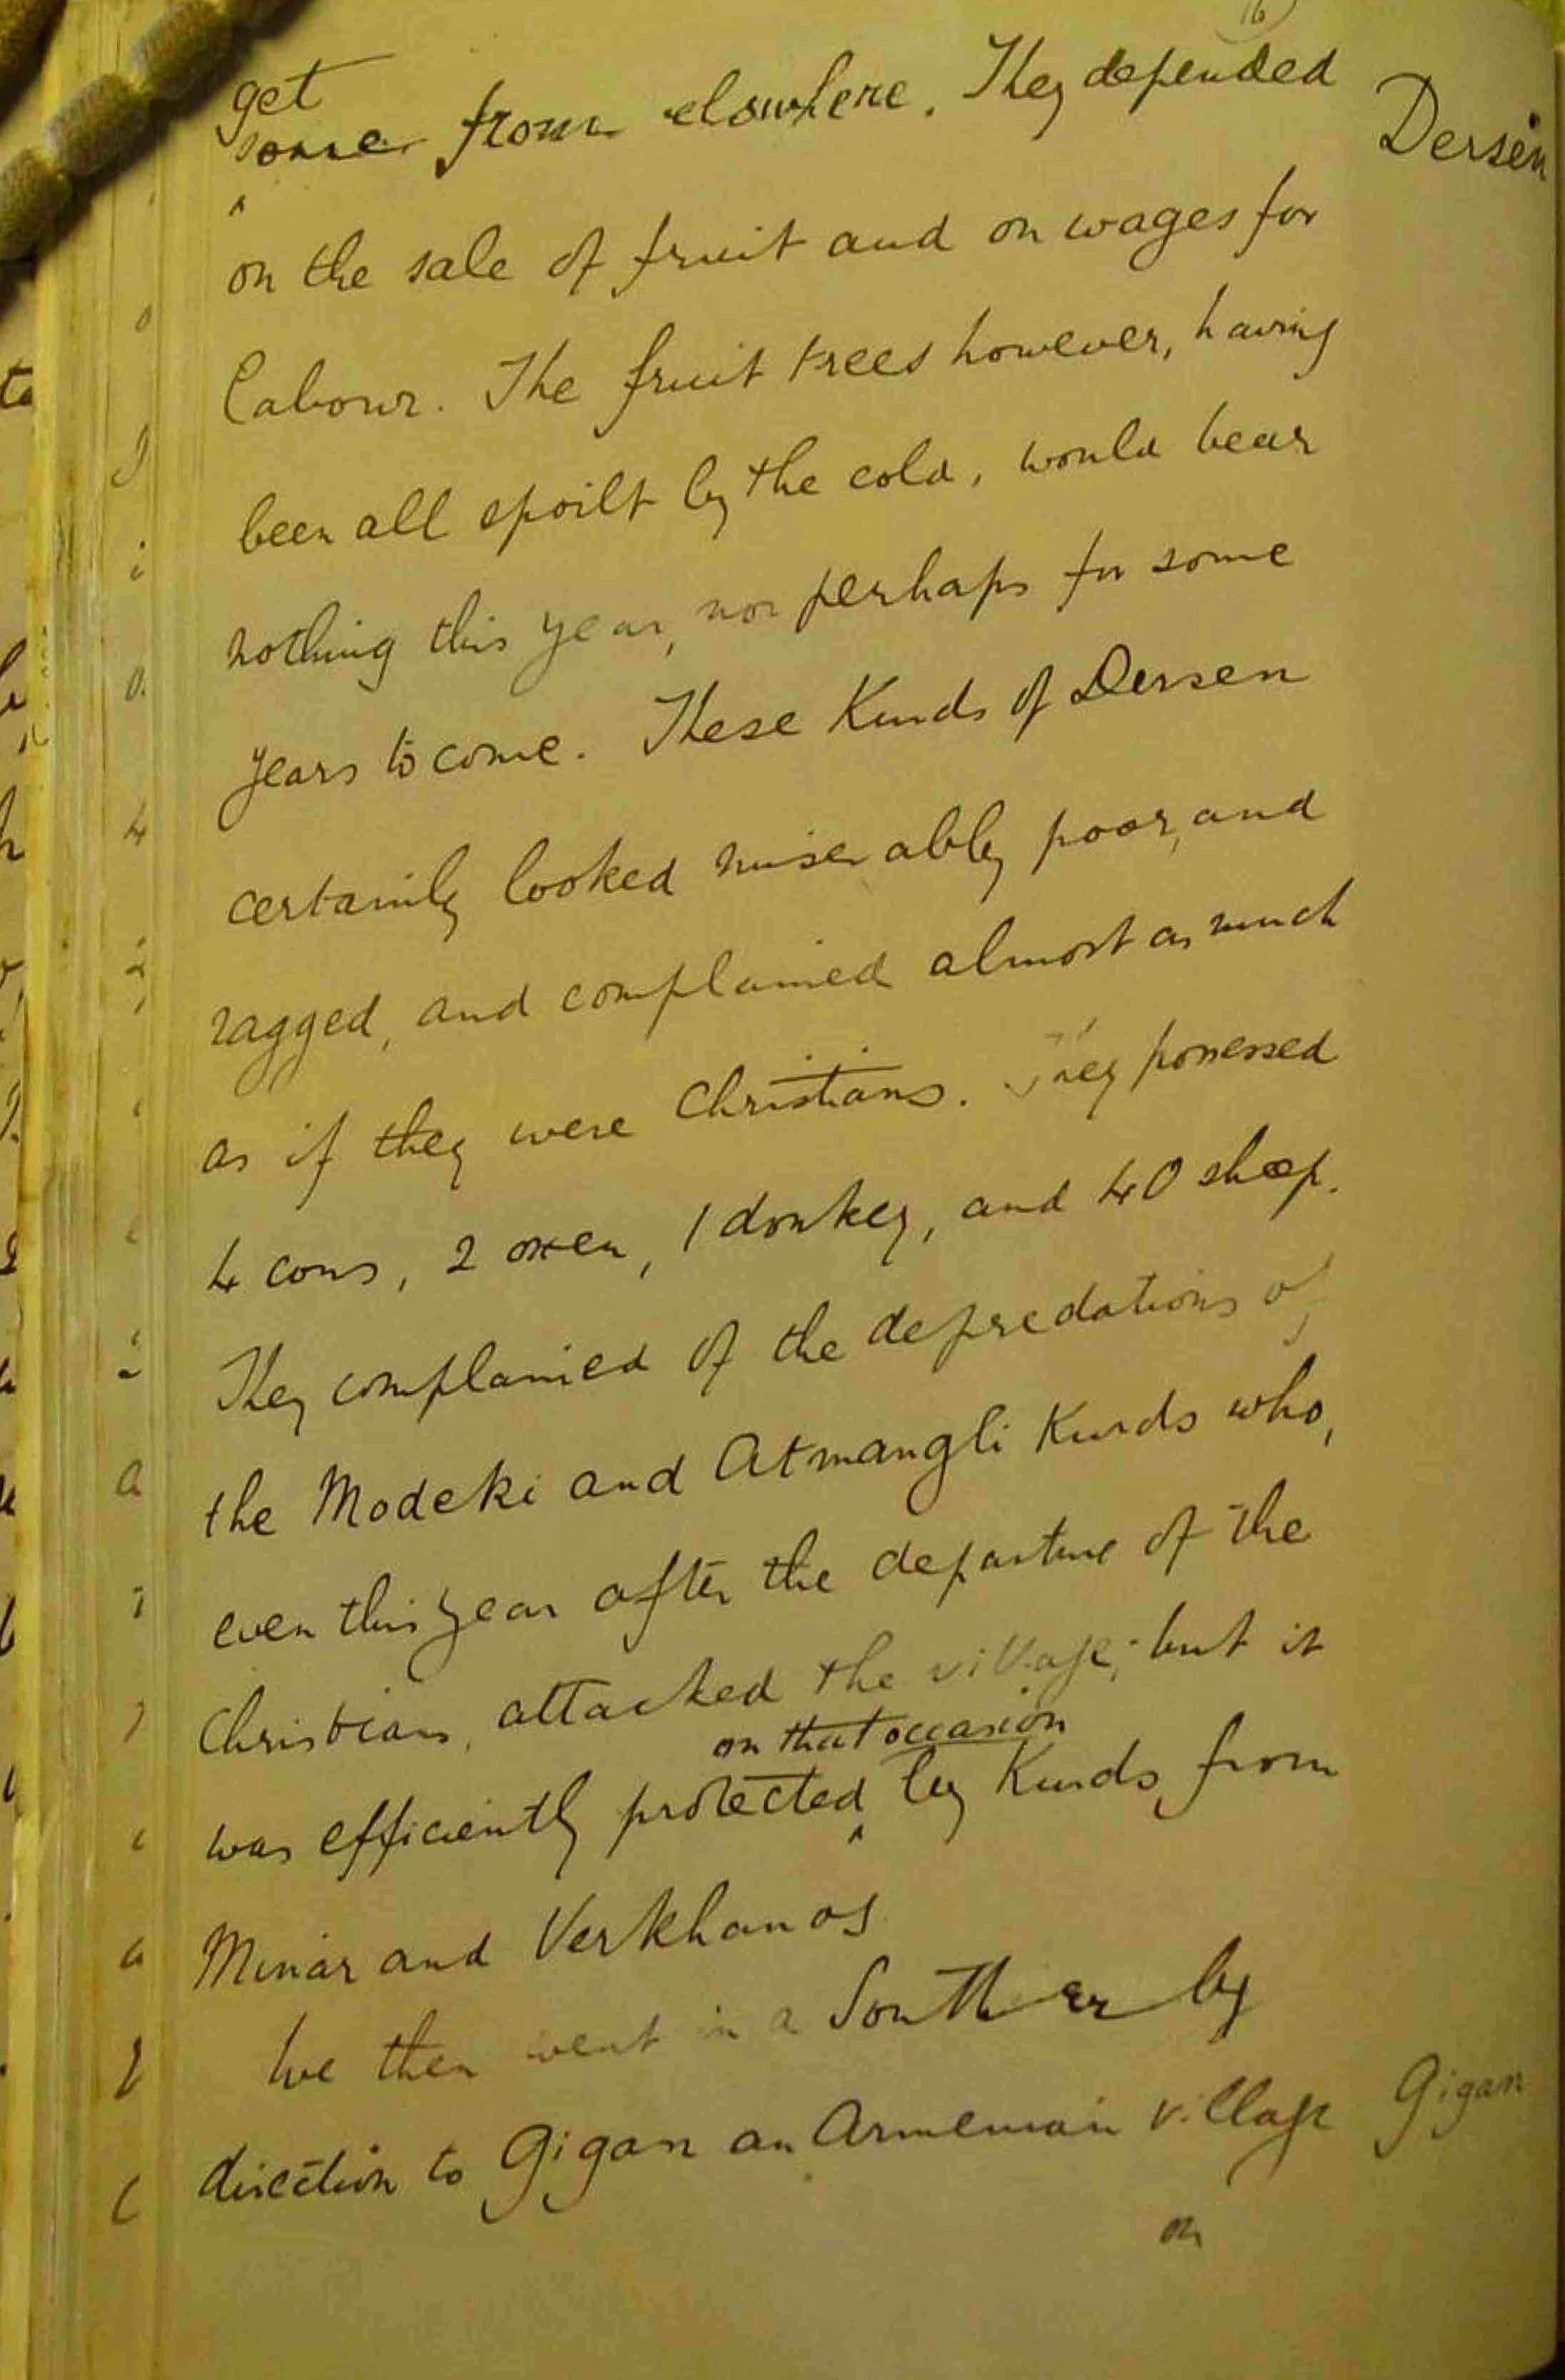 16)
get
some from elsewhere. They depended
Dersen
on the sale of fruit and on wages for
labour. The fruit trees however, having
been all spoilt by the cold, would bear
nothing this year, nor perhaps for some
years to come. These Kurds of Dersen
certainly looked miserably poor, and
ragged, and complained almost as much
as if they were Christians. They possessed
4 cows, 2 oxen, 1 donkey, and 40 sheep.
They complained of the depredations of
the Modeki and Atmangli Kurds who,
even this year after the departure of the
Christians, attacked the village; but it
on that occasion
was efficiently protected by Kurds from
Minar and Verkhanos
We then went in a Southerly
direction to Gigan an Armenian village
Gigan
on